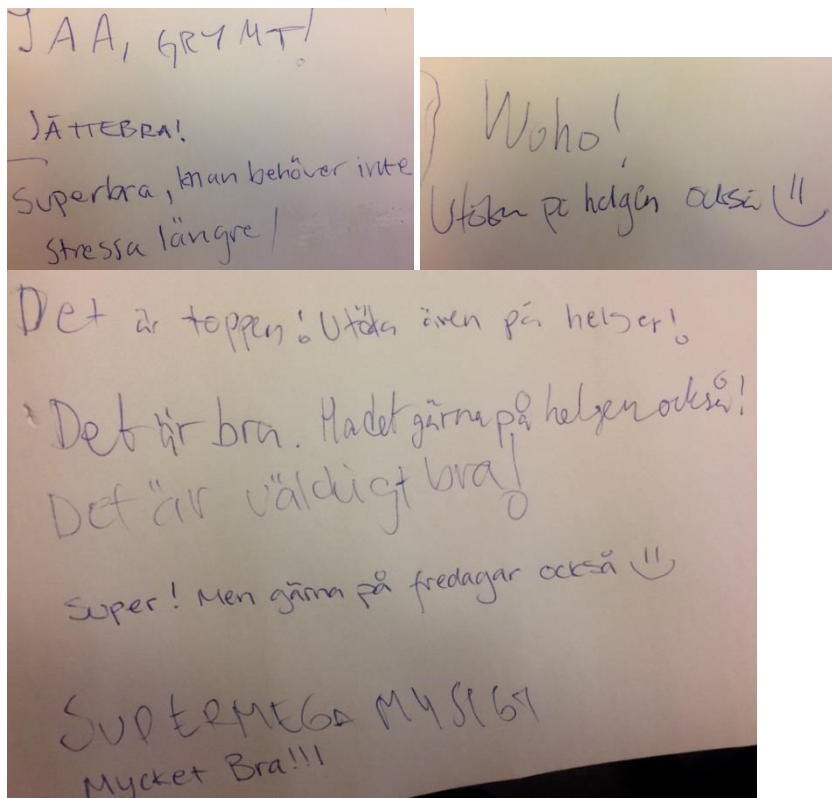 JAA, GRYMT!
JÄTTEBRA!
Superbra, man behöver inte
stressa längre!
Woho!
Utöka på helgen också
Det är toppen! Utöka även på helger!
Det är bra. Ha det gärna på helgen också!
Det är väldigt bra!
Super! Men gärna på fredagar också
SUPERMEGA MYSIGT
Mycket Bra!!!